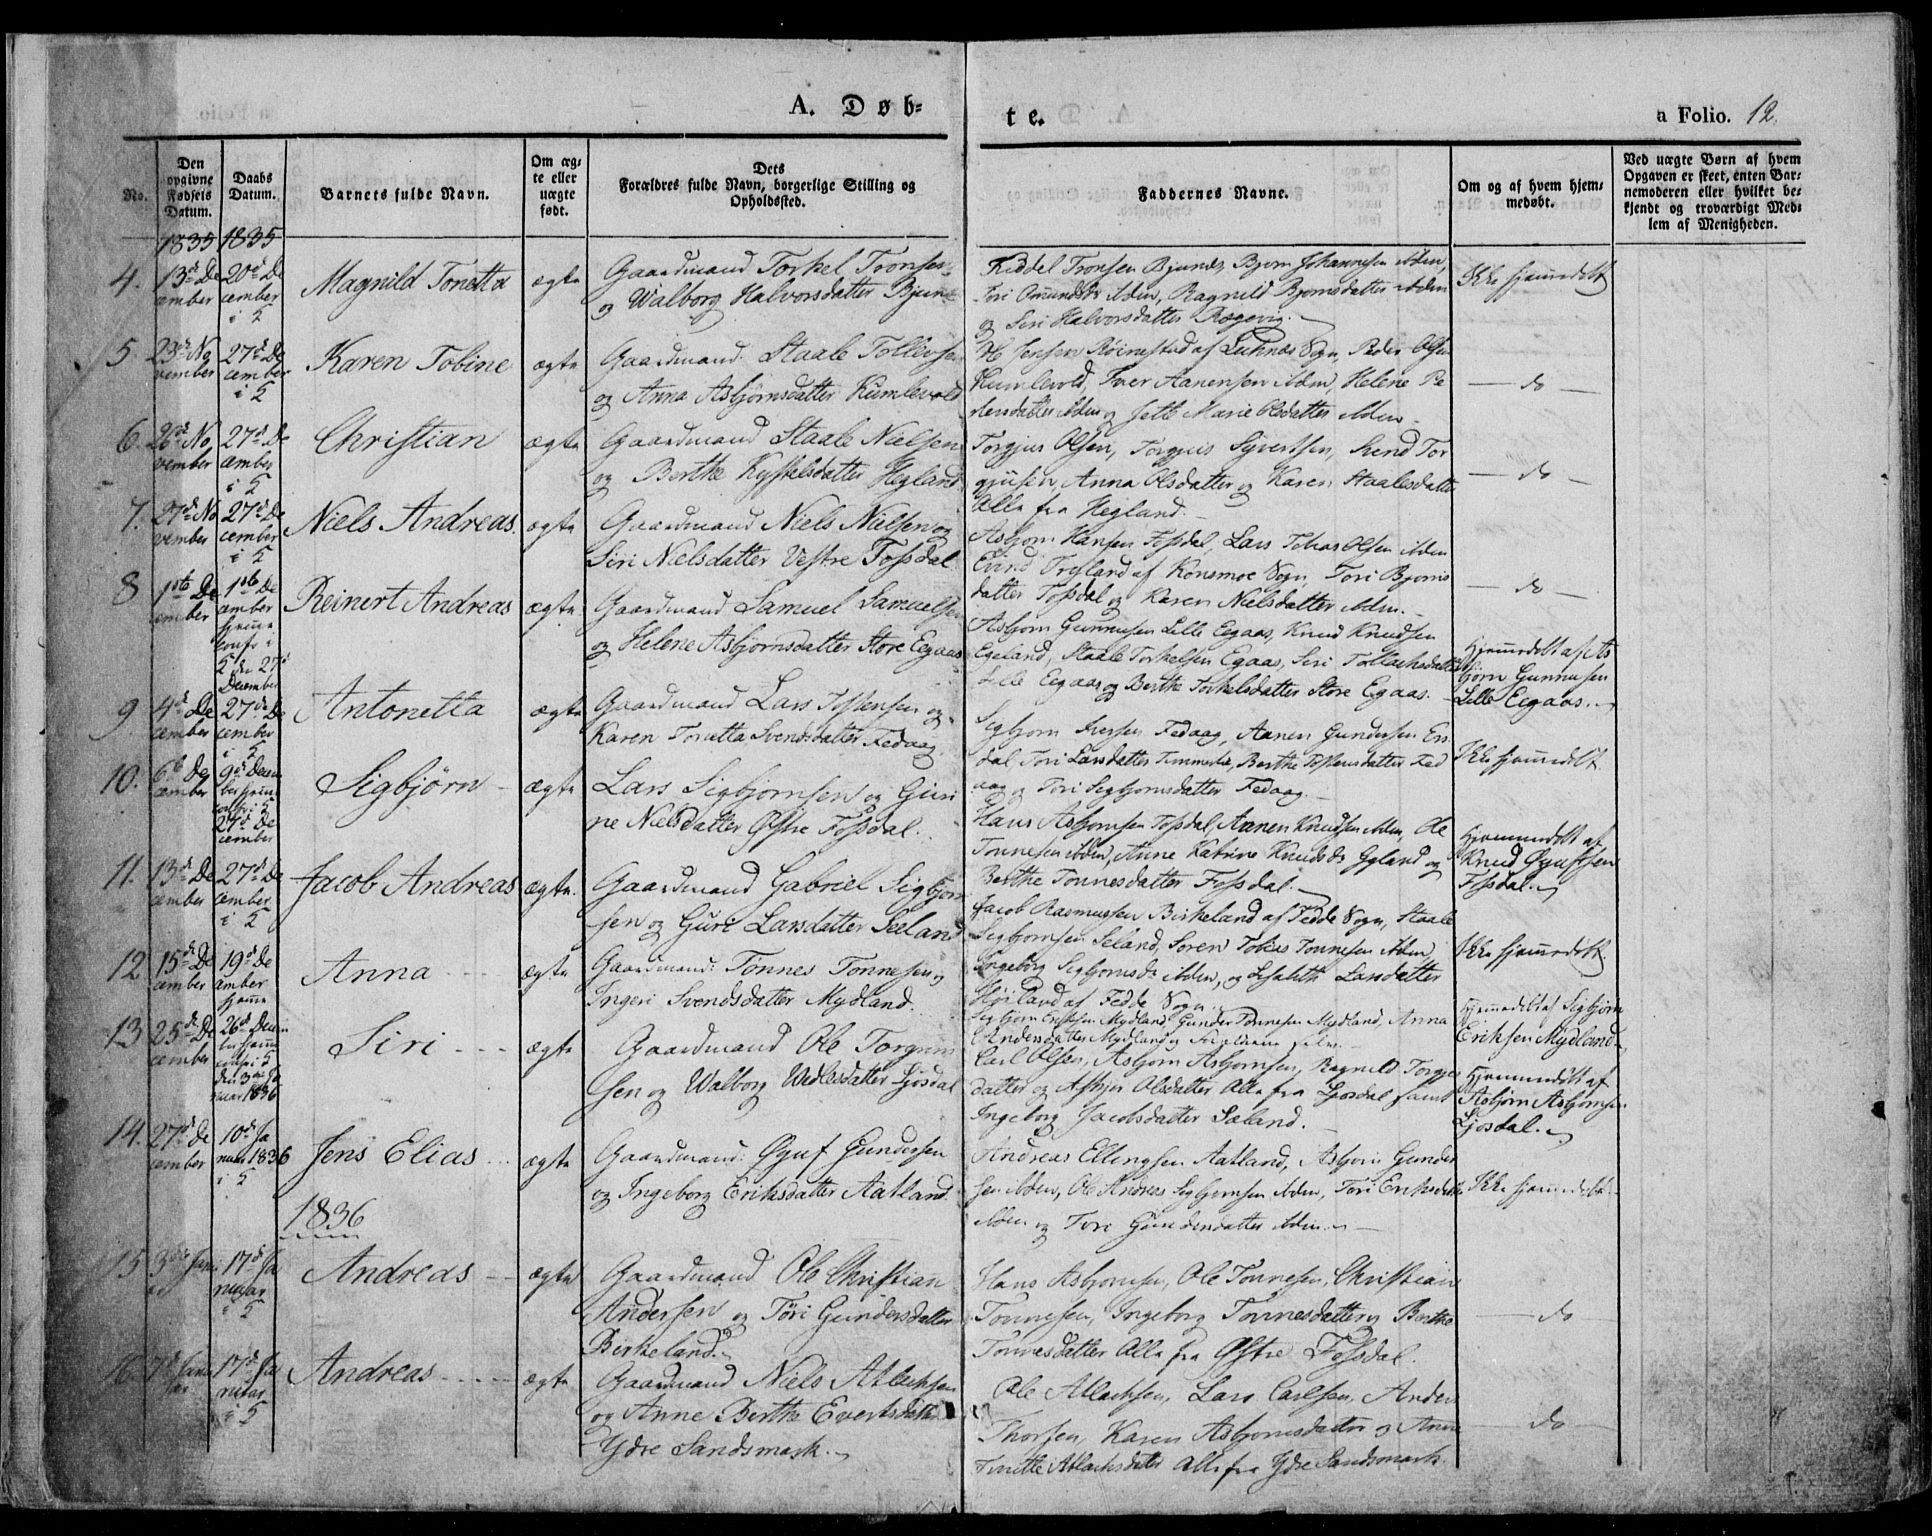 A. Døb-
te.
a Folio. 12.
No.
Den opgivne Fødsels Datum.
Daabs Datum.
Barnets fulde Navn.
Om ægte eller uægte født.
Dets Forældres fulde Navn, borgerlige Stilling og Opholdssted.
Faddernes Navne.
Om og af hvem hjemmedøbt.
Ved uægte Børn af hvem Opgaven er skeet, enten Barnemoderen eller hvilket bekjendt og troværdigt Medlem af Menigheden.
1835 1835
4. 13de De 20de De
cember cember
i
Magnild Tonetta
ægte
Gaardmand Torkel Tronsen
og Walborg Halvorsdatter
Keddel Tronsen Bjunes, Bjorn Johannesen ibden,
Tori ibden, Ragnild Bjornsdatter ibden
og Siri Halvorsdatter
Ikke hjemmedøbt
5. 23de No 27de De
vember cember
i
Karen Tobine
ægte
Gaardmand Staale Tollevsen
og Anna Asbjørnsdatter Kumlevold
Jensen Røinestad af Sogn, Peder Olsen
Kumlevold, Iver Aanensen ibden, Helene Pe
dersdatter ibden og Marie Olsdatter ibden
do
6. 26de No 27de De
vember cember
i
Christian
ægte
Gaardmand Staale Nielsen
og Berthe Hegland
Torgjus Olsen, Torgjus Syvertsen, Svend Tor
gjusen, Anna Olsdatter og Karen Staalesdatter
Alle fra Hegland.
do
7. 27de No 27de De
vember cember
i
Niels Andreas
ægte
Gaardmand Niels Nielsen og
Siri Nielsdatter Vestre Fossdal
Asbjorn Hansen Fossdal, Lars Tobias Olsen ibden
Evind af Konsmoe Sogn, Tori Bjorns
datter Fossdal og Karen Nielsdatter ibden.
do
8 1ste De 1ste De
cember cember
hjemme
conf. i
den 27de
December
Reinert Andreas
ægte
Gaardmand Samuel Samuelsen
og Helene Asbjørnsdatter Store Eegaas
Asbjorn Gunnusen Lille Eegaas, Knud Knudsen
Egeland, Staale Torkelsen Egaas, Siri
Lille Eegaas og Berthe Torkelsdatter Store Egaas.
Hjemmedøbt af As
bjørn Gunnusen
Lille Eegaas.
9 4de De 27de De
cember cember
i
Antonetta
ægte
Gaardmand Lars Tostensen og
Karen Tonetta Svendsdatter Fedaag
Sigbjorn Iversen Fedaag, Aanen Gundersen En
dal, Tori Larsdatter Berthe Tostensdatter Fed
aag og Tori Sigbjornsdatter Fedaag.
Ikke hjemmedøbt
10. 6te De 9de Decem
cember ber hjemme
27de De
cember
Sigbjørn
ægte
Lars Sigbjornsen og Guri
ne Nielsdatter Østre Fossdal.
Hans Asbjornsen Fossdal, Aanen Knudsen ibden, Ole
Tonnesen ibden, Anne Katrine Gyland og
Berthe Tonnesdatter Fossdal.
Hjemmedøbt af
Knud
Fossdal.
11. 13de De 27de De
cember cember
i
Jacob Andreas
ægte.
Gaardmand Gabriel Sigbjorn
sen og Guri Larsdatter Seeland
Jacob Rasmussen Birkeland af Fedde Sogn, Staale
Sigbjornsen Seland, Soren Tobias Tonnesen ibden,
Ingeborg ibden, og Larsdatter
Høiland af Fedde Sogn.
Ikke hjemmedøbt
12 15de De 19de De
cember cember
hjemme
Anna
ægte
Gaardmand Tonnes Tonnesen og
Ingeri Svendsdatter Mydland.
Sigbjorn Eriksen Mydland, Gunder Tonnesen Mydland, Anna
Andersdatter Mydland og Forældrene selv.
Hjemmedøbt af Sigbjørn
Eriksen Mydland
13 25de De 26de Decem
cember ber hjemme
den 3die Ja
nuar 1836
Siri
ægte
Gaardmand Ole
sen og Walborg Wedlesdatter Ljosdal
Carl Olsen, Asbjorn Asbjornsen, Ragnild Torgjus
datter og Olsdatter Alle fra Ljosdal samt
Ingeborg Jacobsdatter Sæland.
Hjemmedøbt af
Asbjørn Asbjornsen
Ljosdal.
14. 27de De 10de Ja
cember nuar 1836
i
Jens Elias
ægte
Gaardmand Gundersen
og Ingeborg Eriksdatter Aatland.
Andreas Ellingsen Aatland, Asbjorn Gunder
sen ibden, Ole Andreas Sigbjornsen ibden, Tori Eriksdatter
ibden og Tori Gundersdatter ibden.
Ikke hjemmedøbt
1836
15 3die Janu 17de Ja
ar nuar
i
Andreas
ægte
Gaardmand Ole Christian
Andersen og Tori Gundersdatter
Birkeland.
Hans Asbjornsen, Ole Tonnesen, Christian
Tonnesen, Ingeborg Tonnesdatter og Berthe
Tonnesdatter Alle fra Østre Fossdal.
do
16. 7de Janu 17de Ja
ar nuar
i
Andreas
ægte
Gaardmand Niels Atlaksen
og Anne Berthe Evertsdatter
Ydre Sandsmark.
Ole Atlaksen, Lars Carlsen, Anders
Thorsen, Karen Asbjornsdatter og Anne
Atlaksdatter Alle fra Ydre Sandsmark.
do